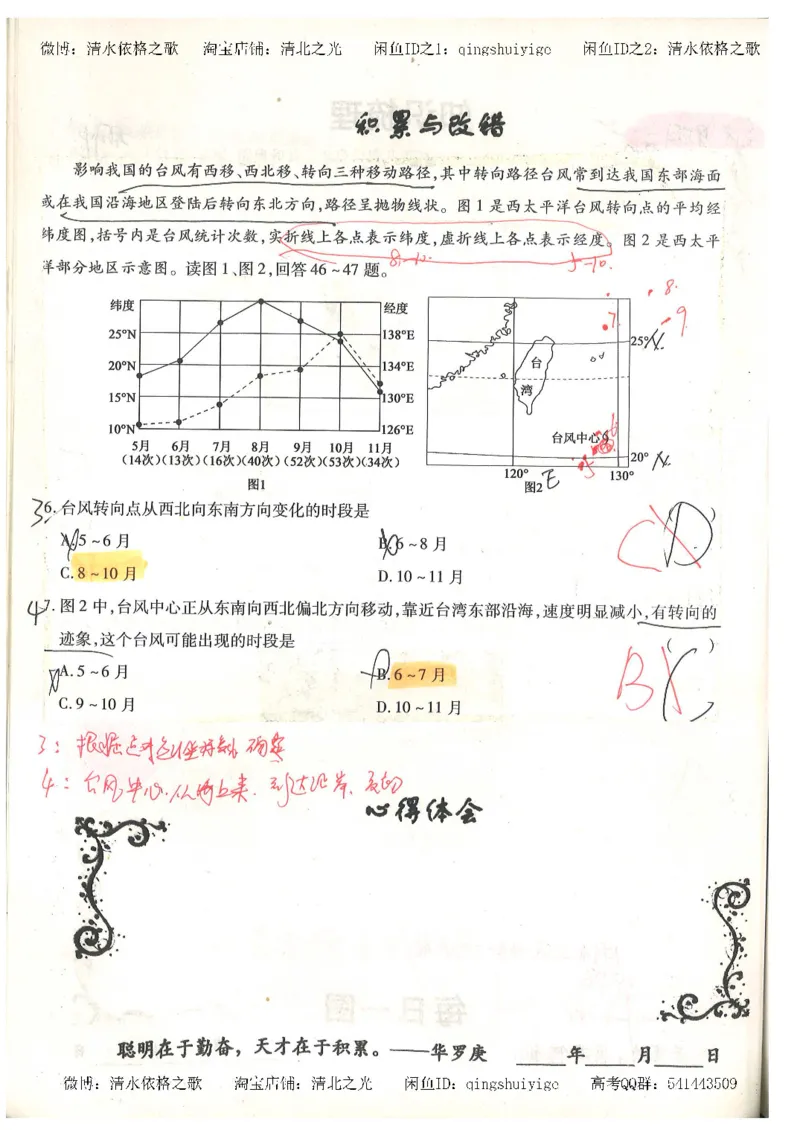 微博：清水依格之歌 淘宝店铺：清北之光 闲鱼ID之1：qingshuiyige 闲鱼ID之2：清水依格之歌
积累与改错
影响我国的台风有西移、西北移、转向三种移动路径,其中转向路径台风常到达我国东部海面
或在我国沿海地区登陆后转向东北方向,路径呈抛物线状。图1是西太平洋台风转向点的平均经
纬度图,括号内是台风统计次数,实折线上各点表示纬度,虚折线上各点表示经度。图2是西太平
洋部分地区示意图。读图1、图2,回答46~47题。
8-10
5-10.
纬度
25°N
20°N
15°N
10°N
经度
138°E
134°E
130°E
126°E
5月 6月 7月 8月 9月 10月 11月
(14次)(13次)(16次)(40次)(52次)(53次)(34次)
图1
8.
7.
9.
25°N.
台
湾
台风中心
6
5
20° N.
120° E 130°
图2
36. 台风转向点从西北向东南方向变化的时段是
( D )
C
A. 5~6月
B. 6~8月
C. 8~10月
D. 10~11月
47. 图2中,台风中心正从东南向西北偏北方向移动,靠近台湾东部沿海,速度明显减小,有转向的
迹象,这个台风可能出现的时段是
( C )
B
A. 5~6月
B. 6~7月
C. 9~10月
D. 10~11月
3：根据
确定
4：台风中心.从海上来.到达
心得体会
聪明在于勤奋，天才在于积累。——华罗庚 ____年____月____日
微博：清水依格之歌 淘宝店铺：清北之光 闲鱼ID：qingshuiyige 高考QQ群：541443509